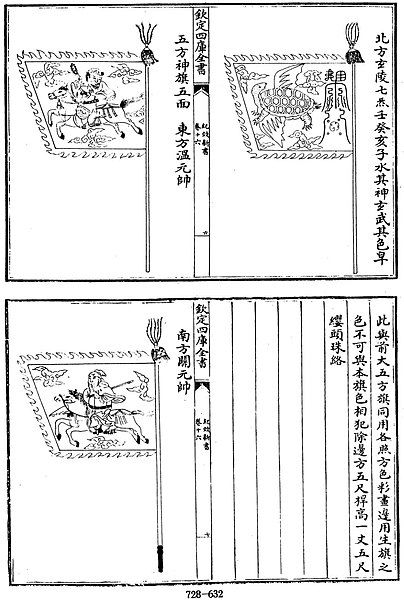 北方玄陵七炁壬癸亥子水其神玄武其色皁
欽定四庫全書
紀效新書
卷十六
五方神旗五面　東方溫元帥
此與前大五方旗同用各照方色彩畫邊用生旗之
色不可與本旗色相犯除邊方五尺桿高一丈五尺
纓頭珠絡
欽定四庫全書
紀效新書
卷十六
南方關元帥
728-632